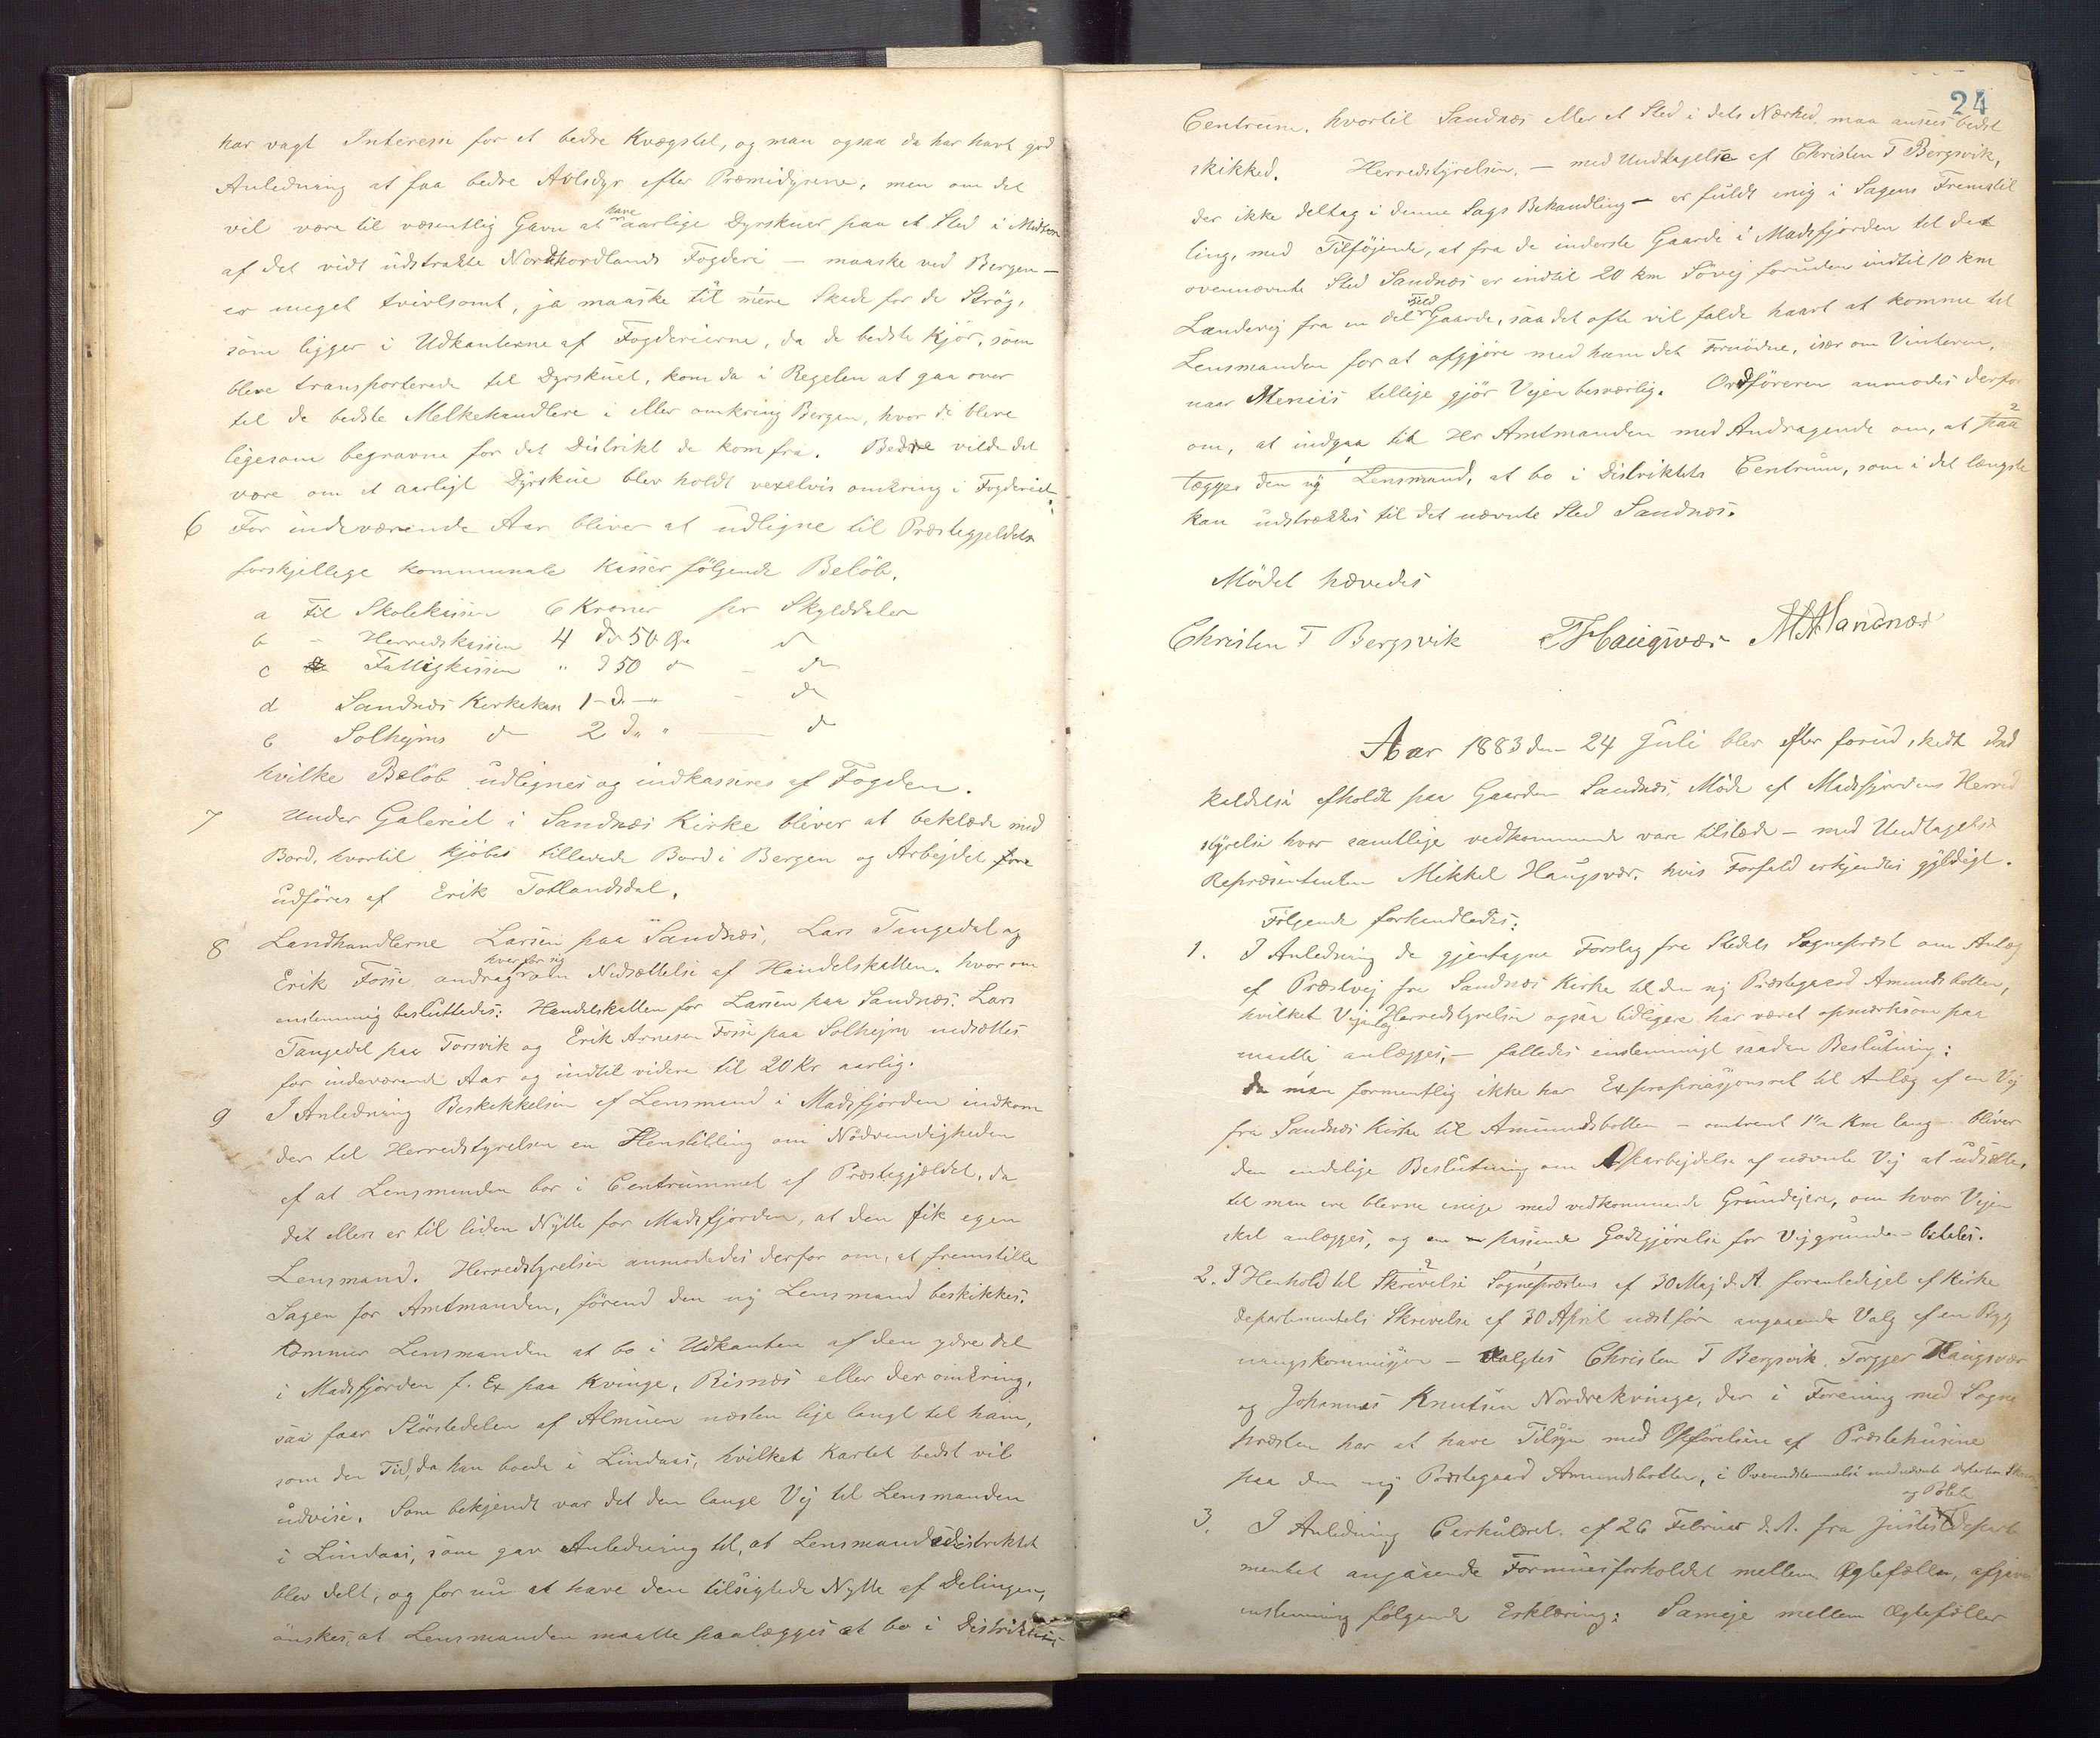 har vagt Interesse for et bedre Kvægstel, og man ogsaa da har havt god
Anledning at faa bedre Avlsdyr efter Præmidyrene, men om det
vil være til væsentlig Gavn at have aarlige Dyrskuer paa et Sted i Midten
af det vidt udstrakte Nordhordlands Fogderi — maaske ved Bergen —
er meget tvivlsomt, ja maaske til mere Skade for de Strøg,
som ligger i Udkanterne af Fogderierne, da de bedste Kjør, som
bleve transporterede til Dyrskuet, kom da i Regelen at gaa over
til de bedste Melkehandlere i eller omkring Bergen, hvor de bleve
ligesom begravne for det Distrikt de kom fra. Bedre vilde det
være om et aarligt Dyrskue blev holdt vexelvis omkring i Fogderiet.
6 For indeværende Aar bliver at udligne til Præstegjeldets
forskjellige kommunale Kasser følgende Beløb.
a Til Skolekassen 6 Kroner pr Skylddaler
b - Herredskassen 4 do 50 Øre do
c Fattigkassen " do 50 do - do
d Sandnæs Kirkekasse 1 - do - " - do
e Solhejms do 2 do " - do
hvilke Beløb udlignes og indkasseres af Fogden.
7 Under Galeriet i Sandnæs Kirke bliver at beklæde med
Bord, hvortil kjøbes tillavede Bord i Bergen og Arbejdet
udføres af Erik Totlandsdal.
8 Landhandlerne Larsen paa Sandnæs, Lars Tangedal og
Erik Fosse andrag hver for sig om Nedsættelse af Handelskatten. hvorom
enstemmig besluttedes: Handelskatten for Larsen paa Sandnæs. Lars
Tangedal paa Torsvik og Erik Arnesen Fosse paa Solhejm nedsættes
for indeværende Aar og indtil videre til 20 Kr aarlig.
9 I Anledning Beskikkelsen af Lensmand i Madsfjorden indkom
der til Herredstyrelsen en Henstilling om Nødvendigheden
af at Lensmanden bor i Centrummet af Præstegjældet, da
det ellers er til liden Nytte for Madsfjorden, at den fik egen
Lensmand. Herredstyrelsen anmodedes derfor om, at fremstille
Sagen for Amtmanden, førend den ny Lensmand beskikkes.
Kommer Lensmanden at bo i Udkanten af den ydre Del
i Madsfjorden f. Ex paa Kvinge, Risnæs eller der omkring,
saa faar Størstedelen af Almuen næsten lige langt til ham,
som den Tid, da han boede i Lindaas, hvilket Kartet bedst vil
udvise. Som bekjendt var det den lange Vej til Lensmanden
i Lindaas, som gav Anledning til, at Lensmandsdistriktet
blev delt, og for nu at have den tilsigtede Nytte af Delingen,
ønskes, at Lensmanden maatte paalægges at bo i Distriktets
24
Centrum, hvortil Sandnæs eller et Sted i dets Nærhed maa ansees bedst
skikked. Herredstyrelsen, — med Undtagelse af Christen T Bergsvik,
der ikke deltog i denne Sags Behandling — er fuldt enig i Sagens Fremstil
ling, med Tilføjende, at fra de inderste Gaarde i Madsfjorden til det
ovennævnte Sted Sandnæs er indtil 20 km Søvej foruden indtil 10 km
Landevej fra en del Field Gaarde, saa det ofte vil falde haart at komme til
Lensmanden for at afgjøre med ham det Fornødne, især om Vinteren,
naar Meniis tillige gjør Vejen besværlig. Ordføreren anmodes derfor
om, at indgaa til Hr Amtmanden med Andragende om, at paa
lægges den ny Lensmand, at bo i Distriktets Centrum, som i det længste
kan udstrækkes til det nævnte Sted Sandnæs.
Mødet hævedes
Christen T Bergsvik T Haugsvær M Sandnæs
Aar 1883 den 24 Juli blev efter forud skedt Ind
kaldelse afholdt paa Gaarden Sandnæs, Møde af Madsfjordens Herred
styrelse hvor samtlige vedkommende vare tilstede — med Undtagelse
Repræsentanten Mikkel Haugsvær, hvis Forfald erkjendtes gyldigt.
Følgende forhandledes:
1. I Anledning de gjentagne Forslag fra Stedets Sogneprest om Anlæg
af Præstvej fra Sandnæs Kirke til den ny Præstegaard Amundsbotten,
hvilket Vejanlæg Herredstyrelsen ogsaa tidligere har været opmærksom paa
maatte anlægges, — fattedes enstemmigt saadan Beslutning:
Da man formentlig ikke har Expropriasjonsret til Anlæg af en Vej
fra Sandnæs Kirke til Amundsbotten — omtrent 1½ Km lang — bliver
den endelige Beslutning om Oparbejdelse af nævnte Vej at udsætte,
til man ere blevne enige med vedkommende Grundejere, om hvor Vejen
skal anlægges, og en passende Godtgjørelse for Vejgrunden betales.
2. I Henhold til Skrivelse Sogneprestens af 30 Maj d. A. foranlediget af Kirke
departementets Skrivelse af 30 April næstfør angaaende Valg af en Byg
ningskommisjon — Valgtes Christen T Bergsvik, Torgjer Haugsvær
og Johannes Knutsen Nordrekvinge, der i Forening med Sogne
præsten har at have Tilsyn med Opførelsen af Præstehusene
paa den ny Præstegaard Amundsbotten, i Overenstemmelse med nævnte
3. I Anledning Cirkulæret af 26 Februar d. A. fra Justits og Politi Departe
mentet angaaende Formuesforholdet mellem Ægtefæller, afgaves
enstemmig følgende Erklæring: Sameje mellem Ægtefæller